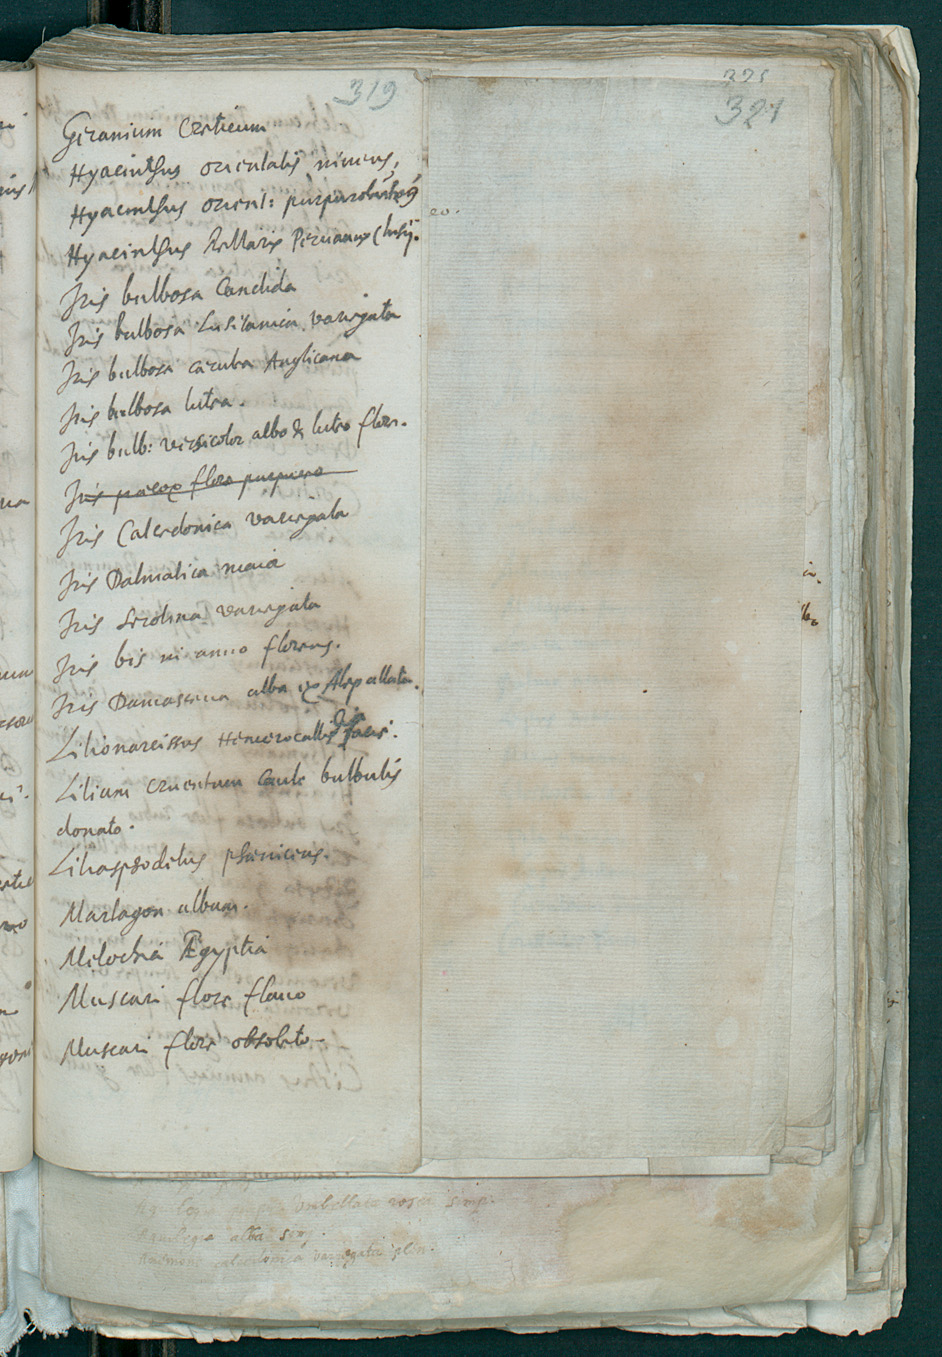 319
Geranium Creticum
Hyacinthus orientalis niveus,
Hyacinthus orient: purpuro
Hyacinthus stellaris Peruanus Clusij.
Iris bulbosa Candida
Iris bulbosa Lusitanica variegata
Iris bulbosa cærulea Anglicana
Iris bulbosa lutea.
Iris bulb: versicolor albo & luteo flore.
Iris præcox flore purpureo
Iris Calcedonica variegata
Iris Dalmatica maior
Iris Serotina variegata
Iris bis in anno florens.
Iris Damascena alba ex Alep allata.
Lilionarcissus Hemerocallidis facie.
Lilium cruentum Caule bulbulis
donato.
Liliasphodelus phœniceus.
Martagon album.
Melochia Ægyptia
Muscari flore flavo
Muscari flore obsoleto
325
321
eo.
umbellata rosea simp.
Aquilegia alba simp.
Anemone calcedonica variegata plen.